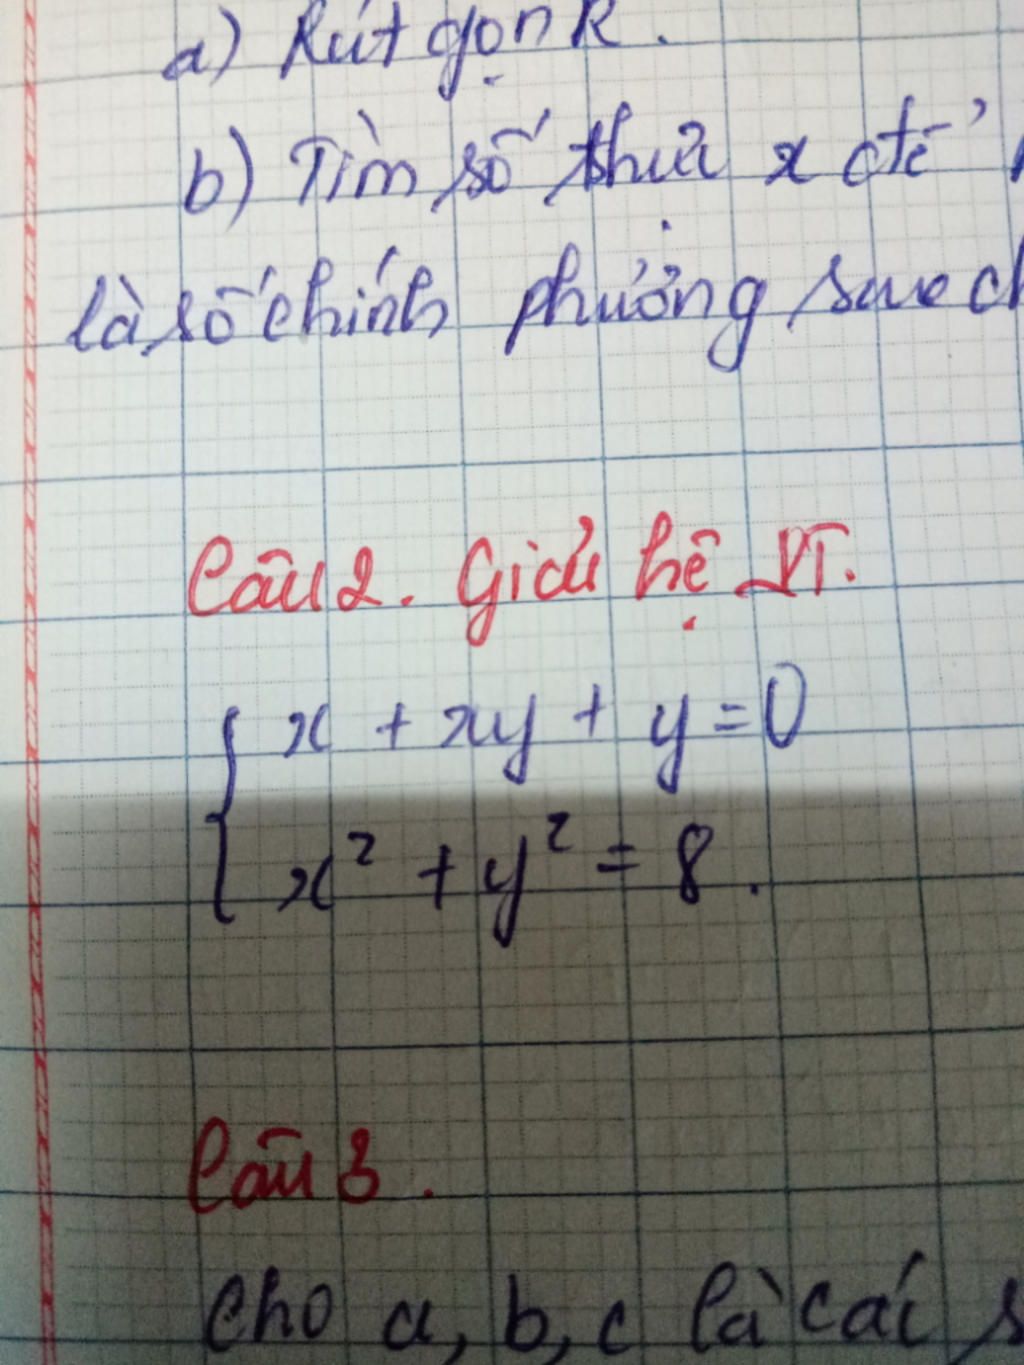 a) Rút gọn R.
b) Tìm số thực x để
là số chính phương sao ch
Câu 2. Giải hệ PT.
x + xy + y = 0
x² + y² = 8.
Câu 3.
Cho a, b, c là các s